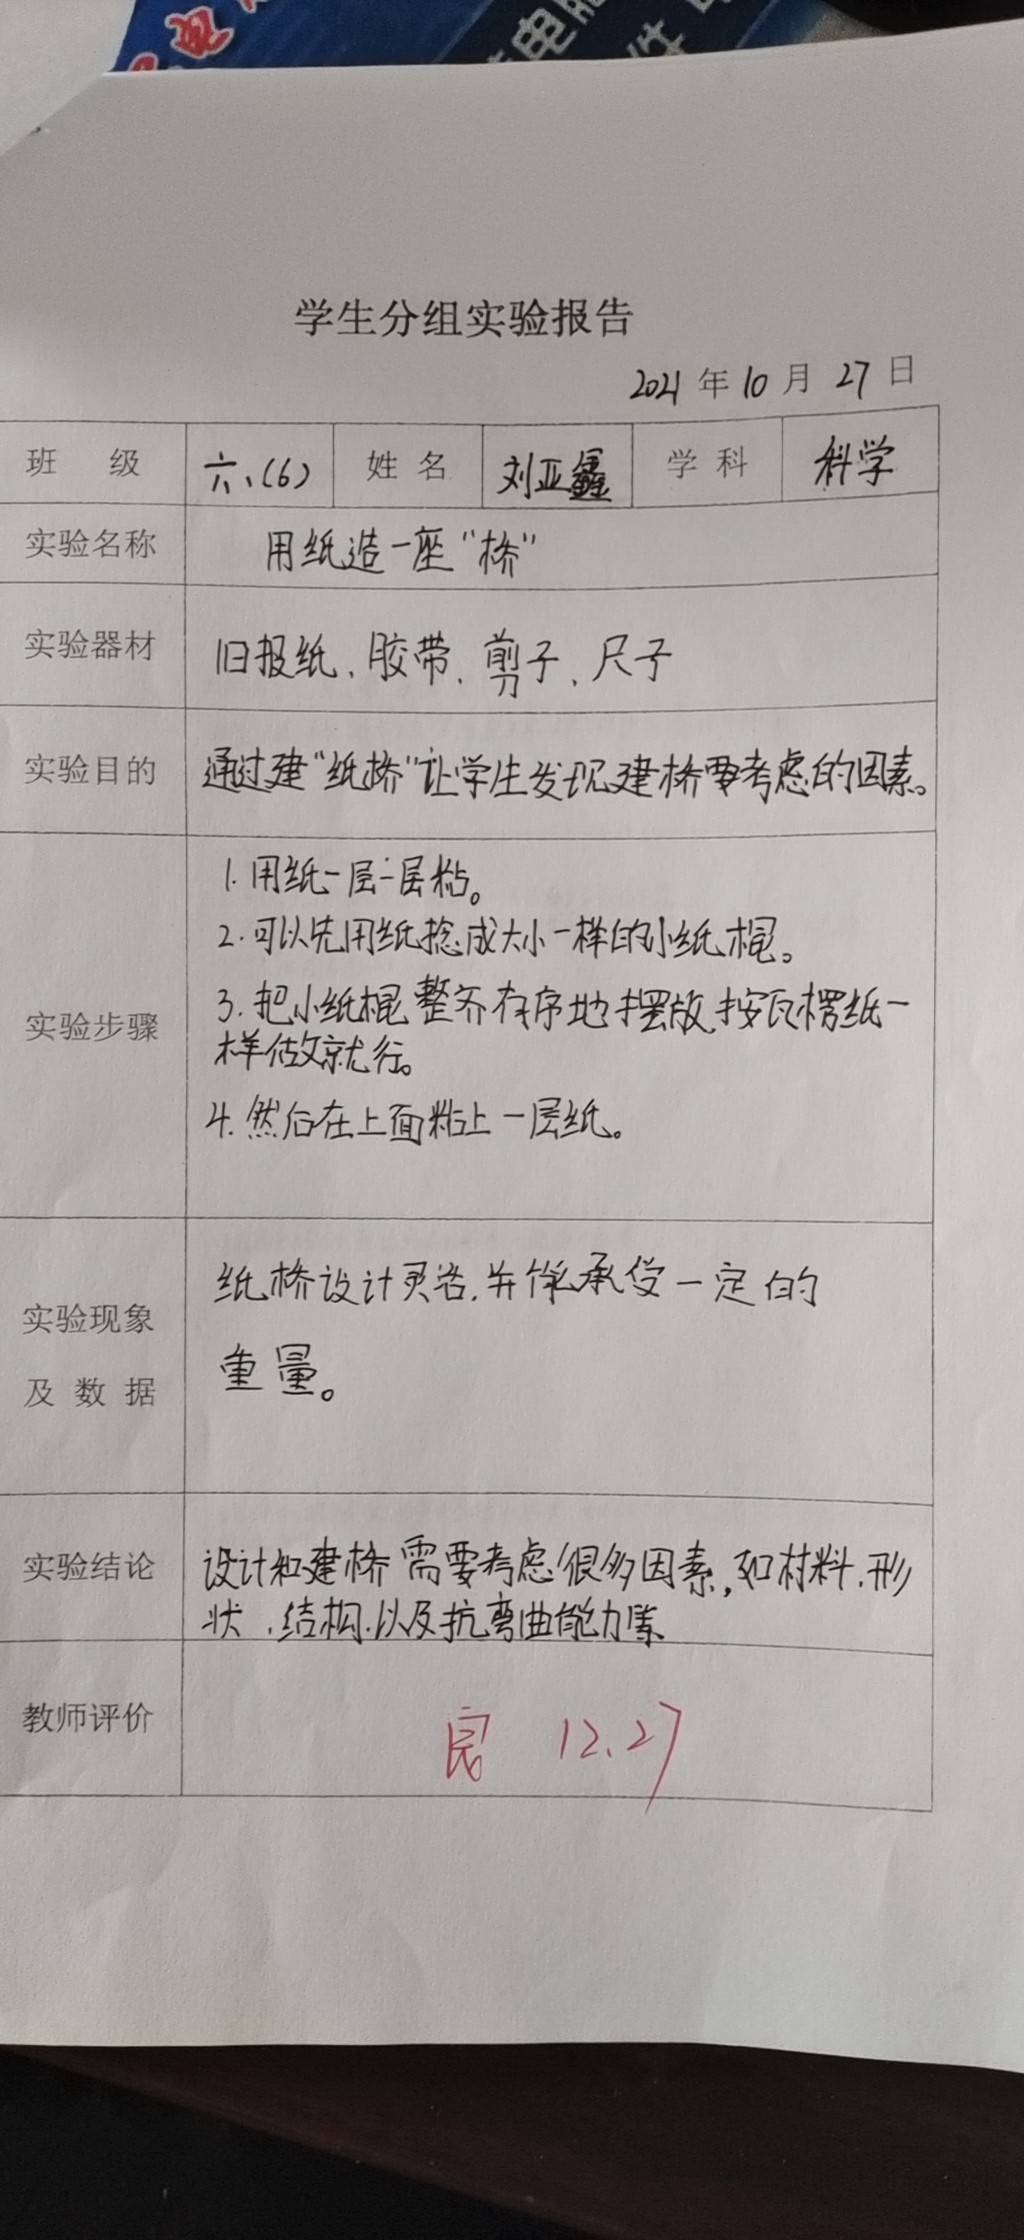 电脑
件
学生分组实验报告
2021 年 10 月 27 日
班 级 六、(6) 姓 名 刘亚鑫 学 科 科学
实验名称 用纸造一座“桥”
实验器材 旧报纸、胶带、剪子、尺子
实验目的 通过建“纸桥”让学生发现建桥要考虑的因素。
1.用纸一层一层粘。
2.可以先用纸捻成大小一样的小纸棍。
实验步骤 3.把小纸棍整齐有序地摆放,按瓦楞纸一
样做就行。
4.然后在上面粘上一层纸。
实验现象 纸桥设计灵活,并能承受一定的
及 数 据 重量。
实验结论 设计和建桥需要考虑很多因素,如材料、形
状、结构、以及抗弯曲能力等
教师评价 良 12.27